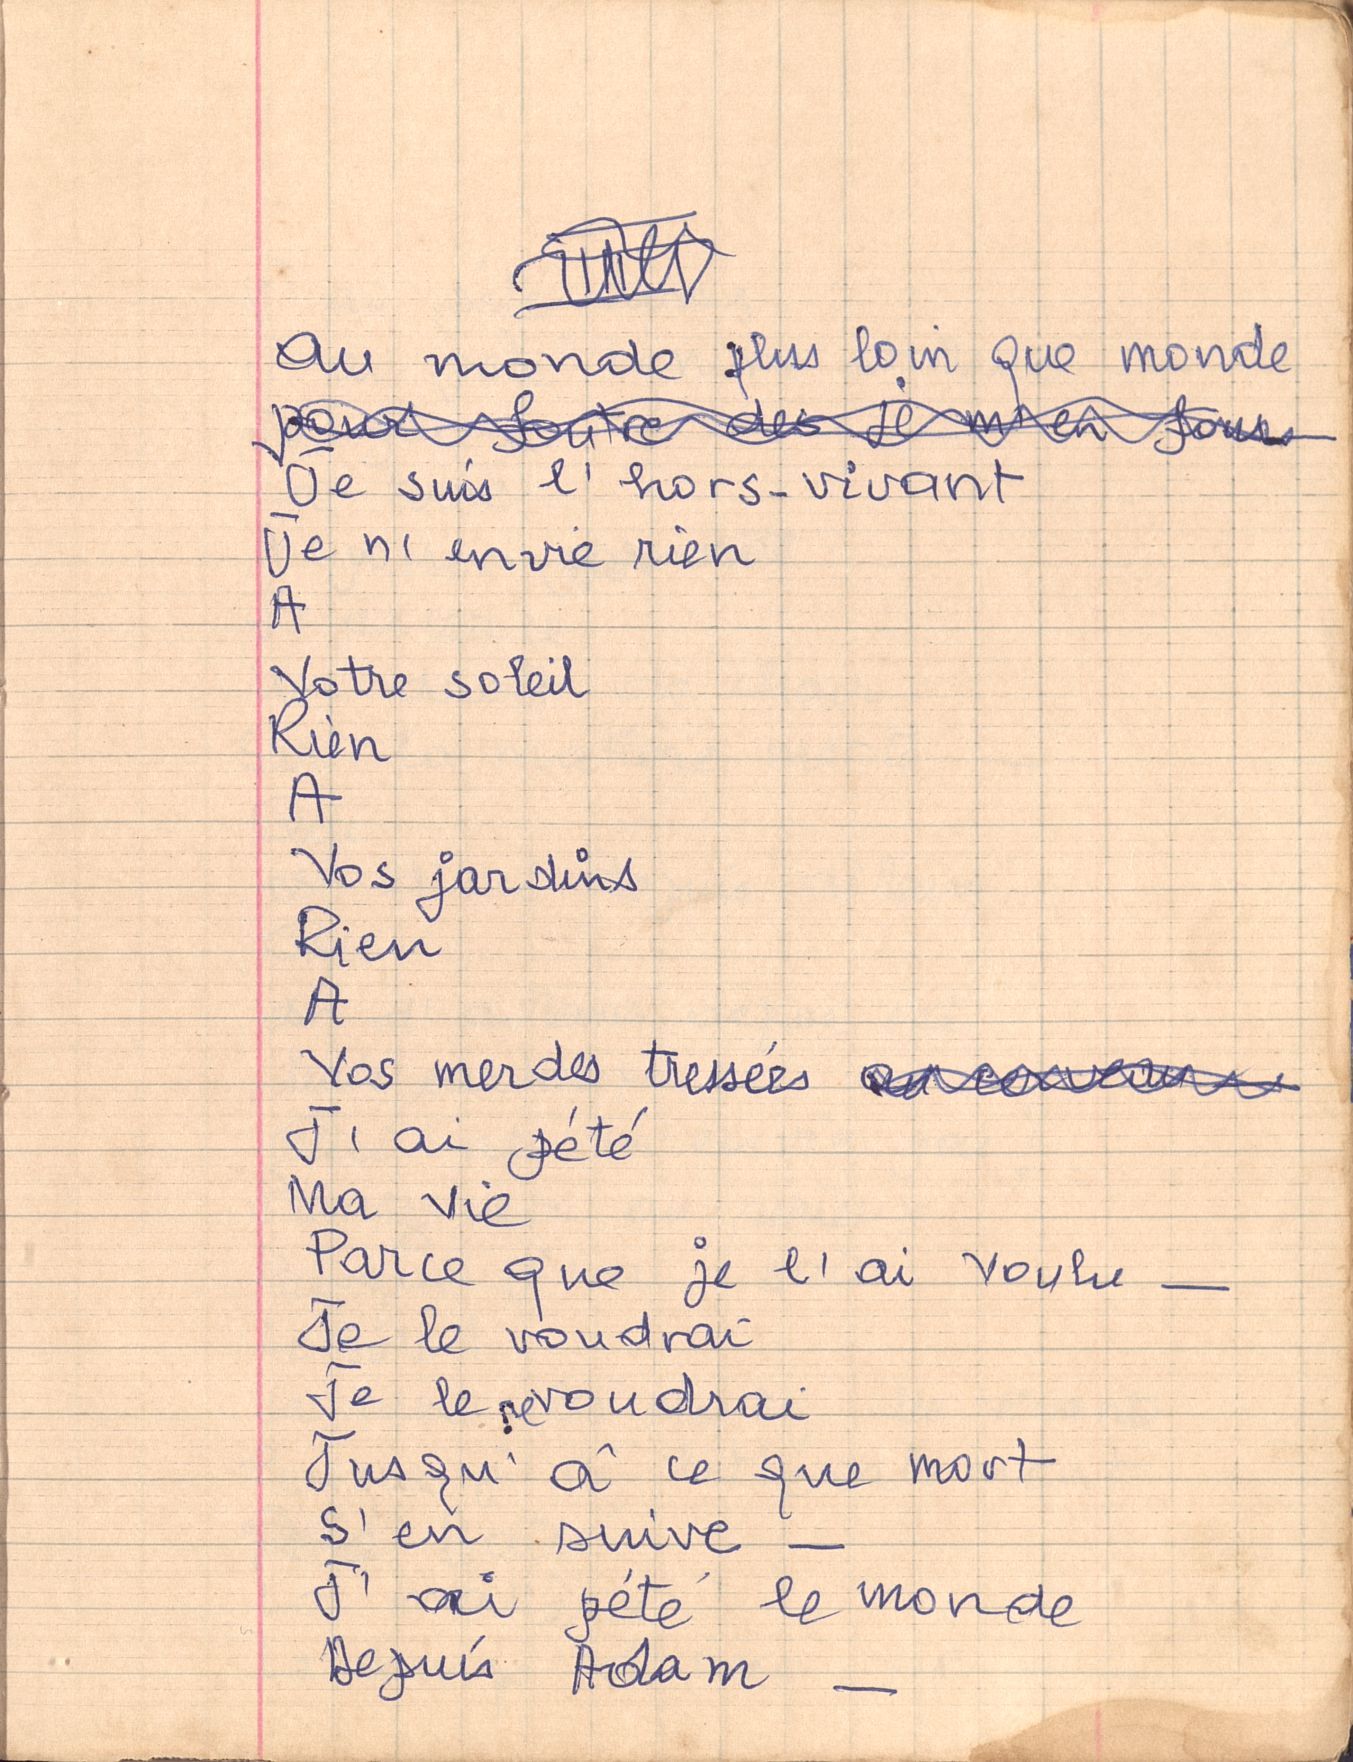 Au monde plus loin que monde
pour foutre des je m'en fous
Je suis l'hors-vivant
Je n'envie rien
A
Votre soleil
Rien
A
Vos jardins
Rien
A
Vos merdes tressées
J'ai pété
Ma vie
Parce que je l'ai voulu —
Je le voudrai
Je le revoudrai
Jusqu'à ce que mort
S'en suive —
J'ai pété le monde
Depuis Adam —